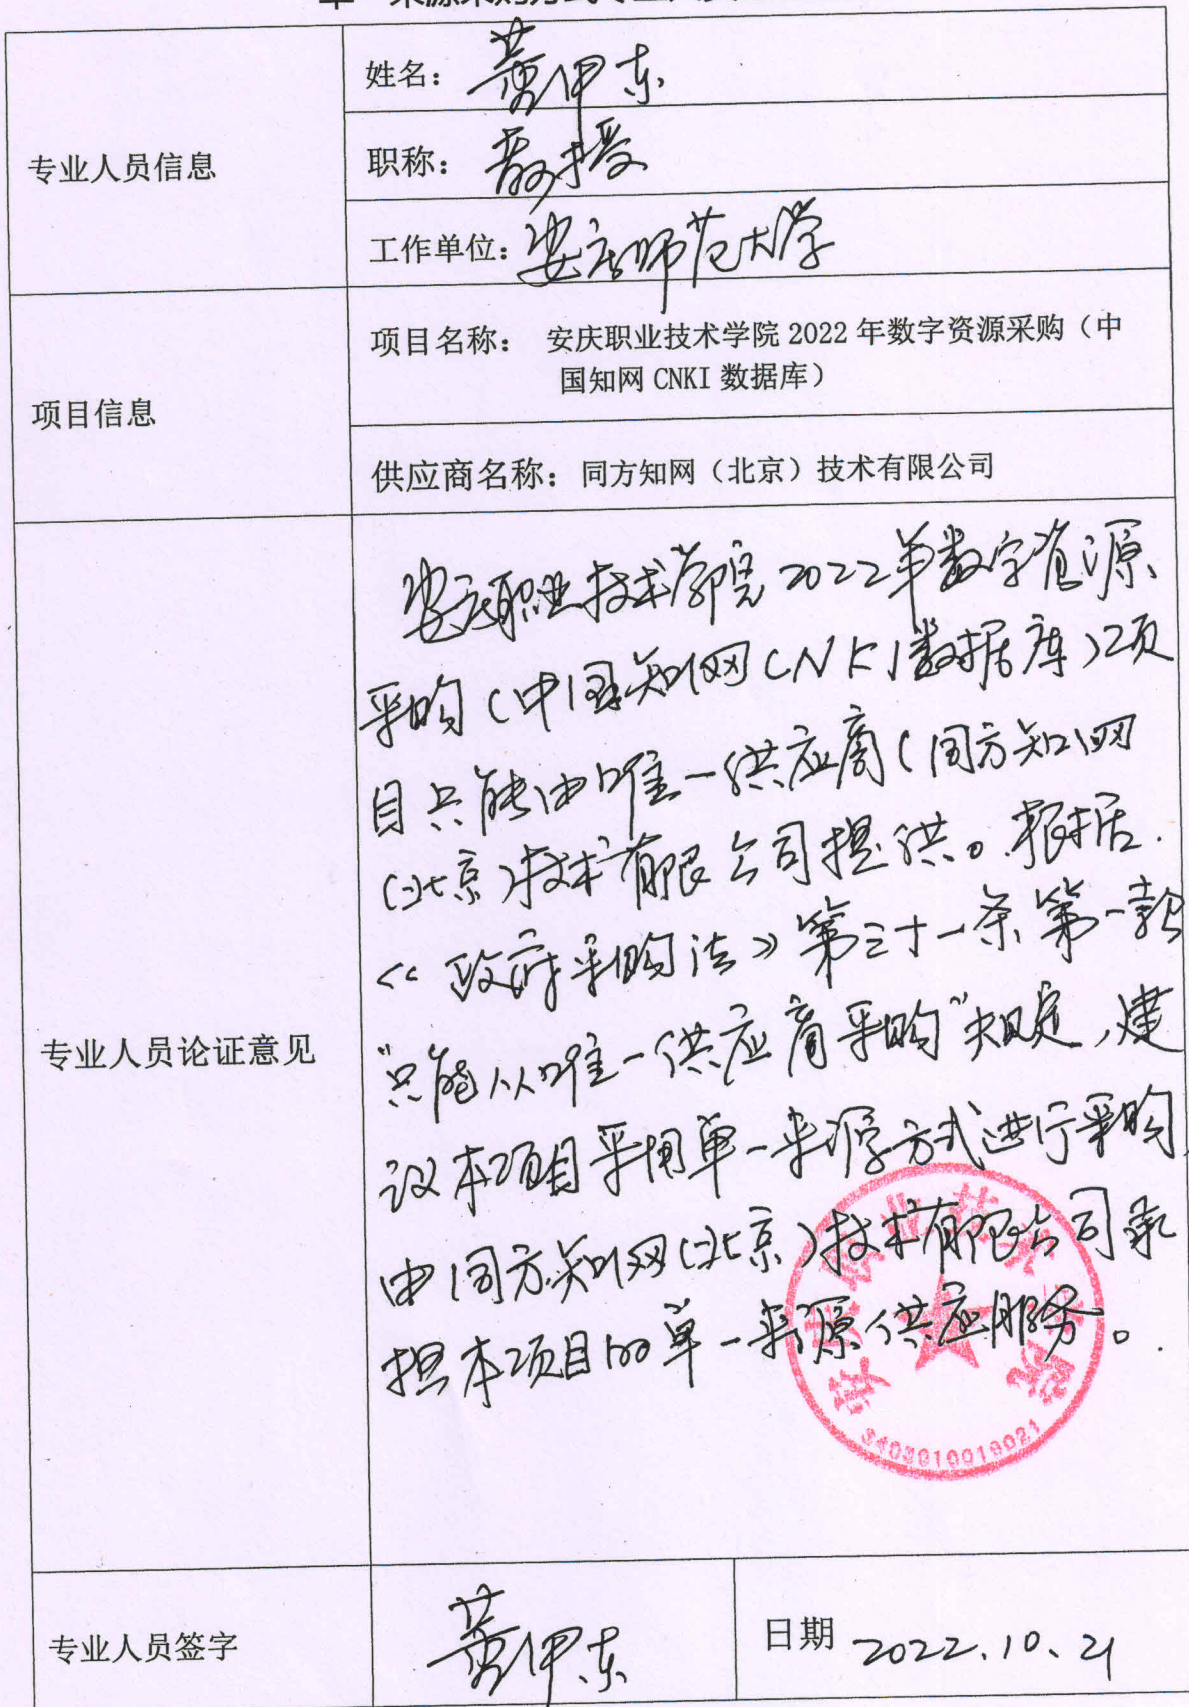 姓名：黄伊东
专业人员信息
职称：教授
工作单位：安庆师范大学
项目名称： 安庆职业技术学院 2022 年数字资源采购（中
国知网 CNKI 数据库）
项目信息
供应商名称：同方知网（北京）技术有限公司
安庆职业技术学院2022年数字资源
采购（中国知网CNKI数据库）项
目只能由唯一供应商（同方知网
（北京）技术有限公司提供。根据
《政府采购法》第三十一条第一款
专业人员论证意见
“只能从唯一供应商采购”规定，建
议本项目采用单一来源方式进行采购，
由同方知网（北京）技术有限公司承
担本项目的单一来源供应服务。
安庆职业技术学院
3408010019021
专业人员签字
日期 2022.10.21